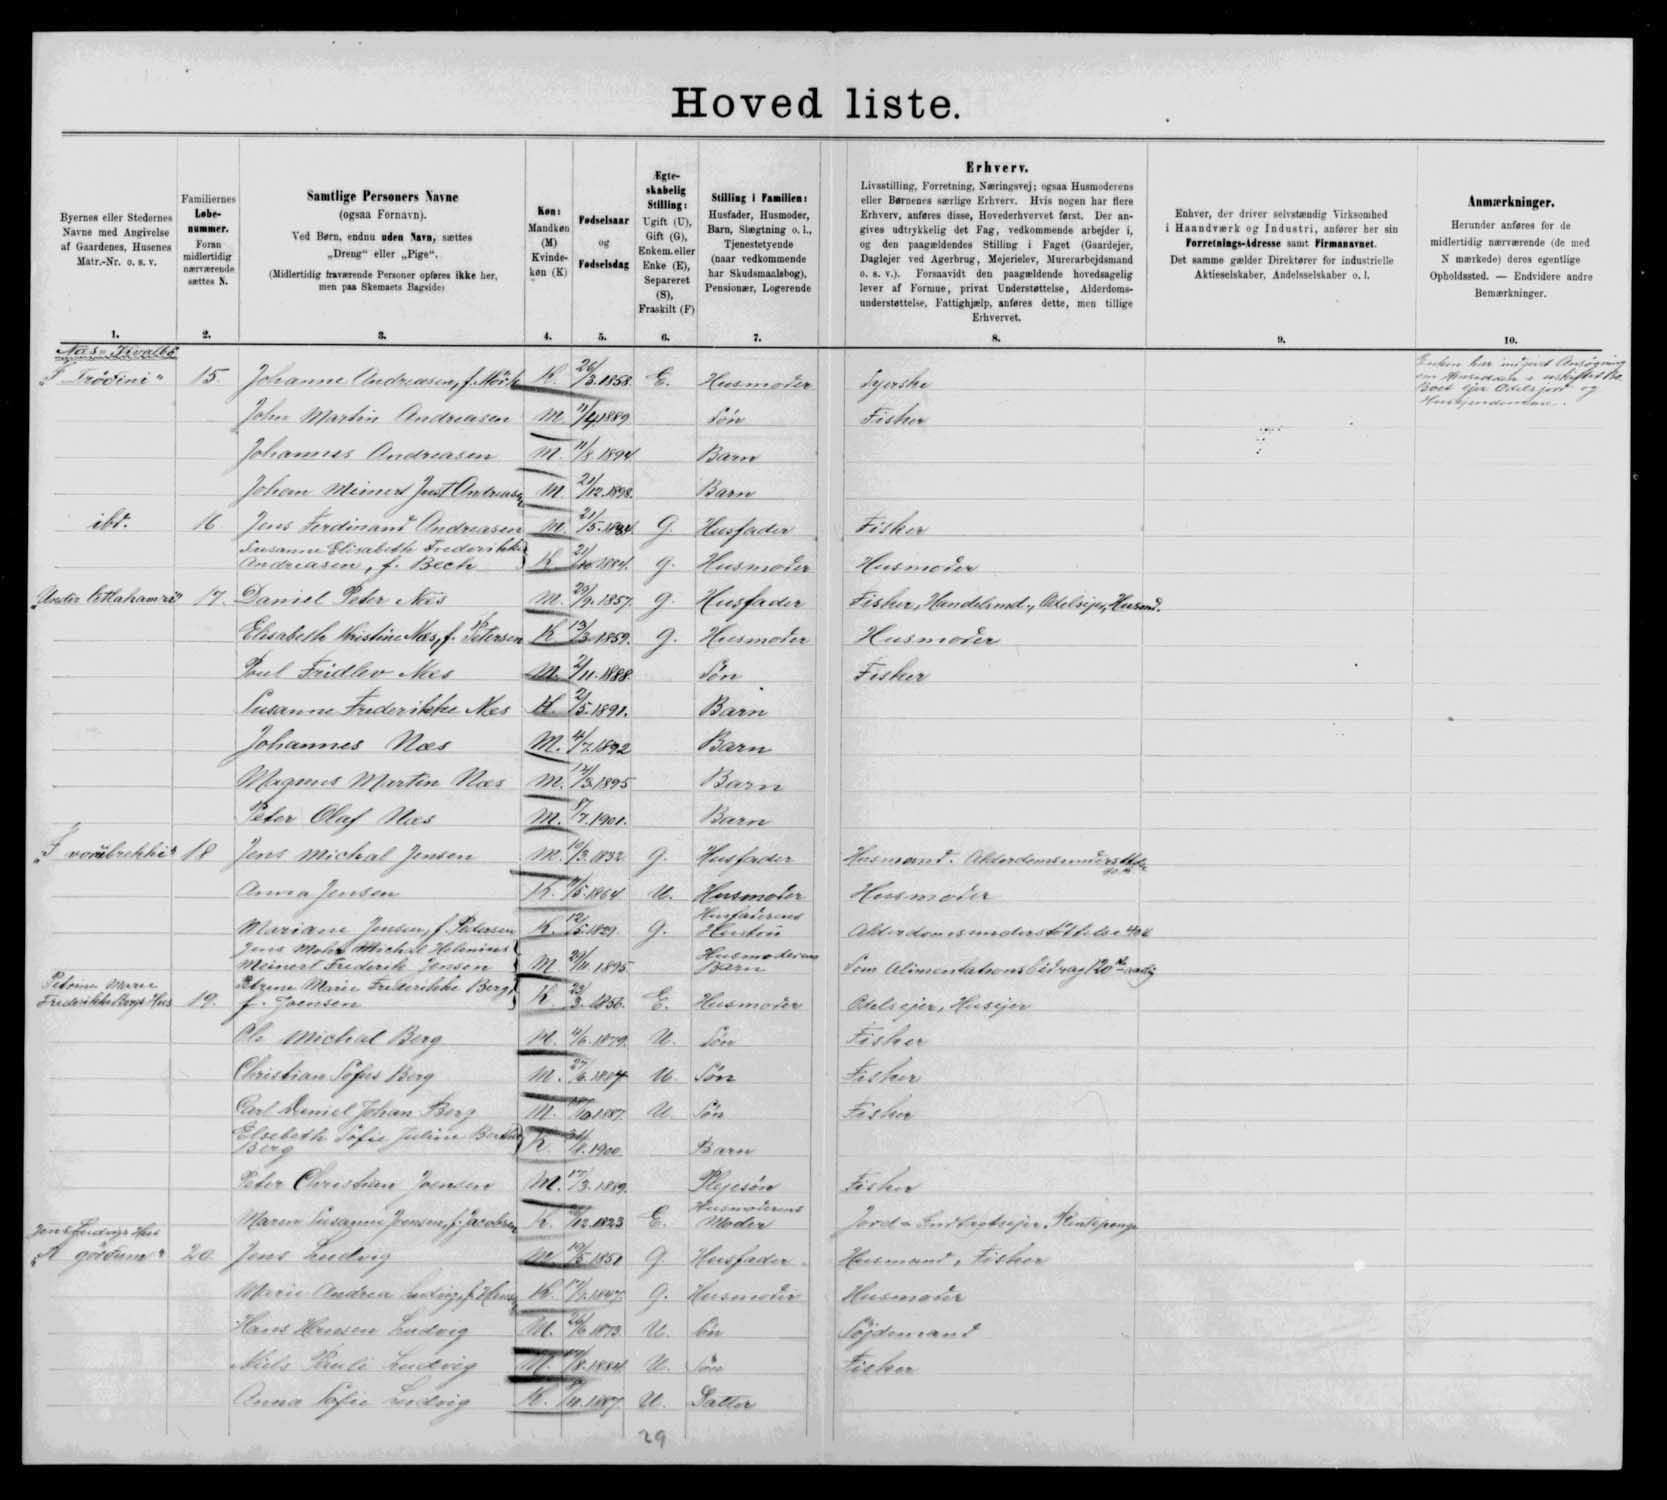 Hoved liste.
Byernes eller Stedernes
Navne med Angivelse
af Gaardenes, Husenes
Matr.-Nr. o. s. v.
1.
Familiernes
Løbe-
nummer.
Foran
midlertidig
nærværende
sættes N.
2.
Samtlige Personers Navne
(ogsaa Fornavn).
Ved Børn, endnu uden Navn, sættes
„Dreng“ eller „Pige“.
(Midlertidig fraværende Personer opføres ikke her,
men paa Skemaets Bagside)
3.
Køn:
Mandkøn
(M)
Kvinde-
køn (K)
4.
Fødselsaar
og
Fødselsdag
5.
Ægte-
skabelig
Stilling:
Ugift (U),
Gift (G),
Enkem. eller
Enke (E),
Separeret
(S),
Fraskilt (F)
6.
Stilling i Familien:
Husfader, Husmoder,
Barn, Slægtning o. l.,
Tjenestetyende
(naar vedkommende
har Skudsmaalsbog),
Pensionær, Logerende
7.
Erhverv.
Livsstilling, Forretning, Næringsvej; ogsaa Husmoderens
eller Børnenes særlige Erhverv. Hvis nogen har flere
Erhverv, anføres disse, Hovederhvervet først. Der an-
gives udtrykkelig det Fag, vedkommende arbejder i,
og den paagældendes Stilling i Faget (Gaardejer,
Daglejer ved Agerbrug, Mejerielev, Murerarbejdsmand
o. s. v.). Forsaavidt den paagældende hovedsagelig
lever af Formue, privat Understøttelse, Alderdoms-
understøttelse, Fattighjælp, anføres dette, men tillige
Erhvervet.
8.
Enhver, der driver selvstændig Virksomhed
i Haandværk og Industri, anfører her sin
Forretnings-Adresse samt Firmanavnet.
Det samme gælder Direktører for industrielle
Aktieselskaber, Andelsselskaber o. l.
9.
Anmærkninger.
Herunder anføres for de
midlertidig nærværende (de med
N mærkede) deres egentlige
Opholdssted. — Endvidere andre
Bemærkninger.
10.
15. Johanne Andreasen, f. K. 26/3.1858. E. Husmoder Syerske
Enken har indgivet Ansøgning
John Martin Andreasen M. 11/4.1889. Søn Fisker
Johannes Andreasen M. 11/8.1894. Barn
Johan Meinert Just Andreasen M. 21/12.1898. Barn
ibd. 16 Jens Ferdinand Andreasen M. 21/5.1884. G. Husfader Fisker
Susanne Elisabeth Frederikke
Andreasen, f. Bech K. 21/10.1884. G. Husmoder Husmoder
17. Daniel Peter Næs M. 29/9.1857. G. Husfader Fisker, Handelsmd., Odelsejer, Husmd.
Elisabeth Kristine Næs, f. Petersen K. 13/3.1859. G. Husmoder Husmoder
Poul Fridlev Næs M. 2/11.1888. Søn Fisker
Susanne Frederikke Næs K. 2/5.1891. Barn
Johannes Næs M. 4/7.1892 Barn
Magnus Martin Næs M. 12/3.1895 Barn
Peter Olaf Næs M. 8/7.1901. Barn
18 Jens Michal Jensen M. 10/3.1832. G. Husfader Husmand. Alderdomsunderstøttelse
Anna Jensen K. 1864 U. Husmoder Husmoder
Mariane Jensen, f. Petersen K. 12/5.1829. G. Husfaderens Hustru Alderdomsunderstøttelse
Jens Mohr Michal Helenius
Meinert Frederik Jensen M 29/11.1895. Husmoderens Barn Som Alimentationsbidrag 120 Kr aarlig
Petrine Marie
Frederikke Bergs Hus 19. Petrine Marie Frederikke Berg,
f. Joensen K. 23/3.1856. E. Husmoder Odelsejer, Husejer
Ole Michal Berg M. 4/6.1879. U. Søn Fisker
Christian Sofus Berg M. 27/6.1884. U. Søn Fisker
Carl Daniel Johan Berg M. 1887. U. Søn Fisker
Elsebeth Sofie Juline
Berg K. 1900. Barn
Peter Christian Joensen M. 17/3.1889. Plejesøn Fisker
Maren Susanne Joensen, f. Jacobsen K. 1823 E. Husmoderens Moder
Jens Ludvigs Hus
20. Jens Ludvig M. 19/5.1851 G. Husfader Husmand, Fisker
Marie Andrea Ludvig, f. Hansen K. 1847. G. Husmoder Husmoder
Hans Hansen Ludvig M. 26/6.1873. U. Søn Søjdemand
Niels Pauli Ludvig M. 1884. U. Søn Fisker
Anna Sofie Ludvig K. 1887. U. Datter
29